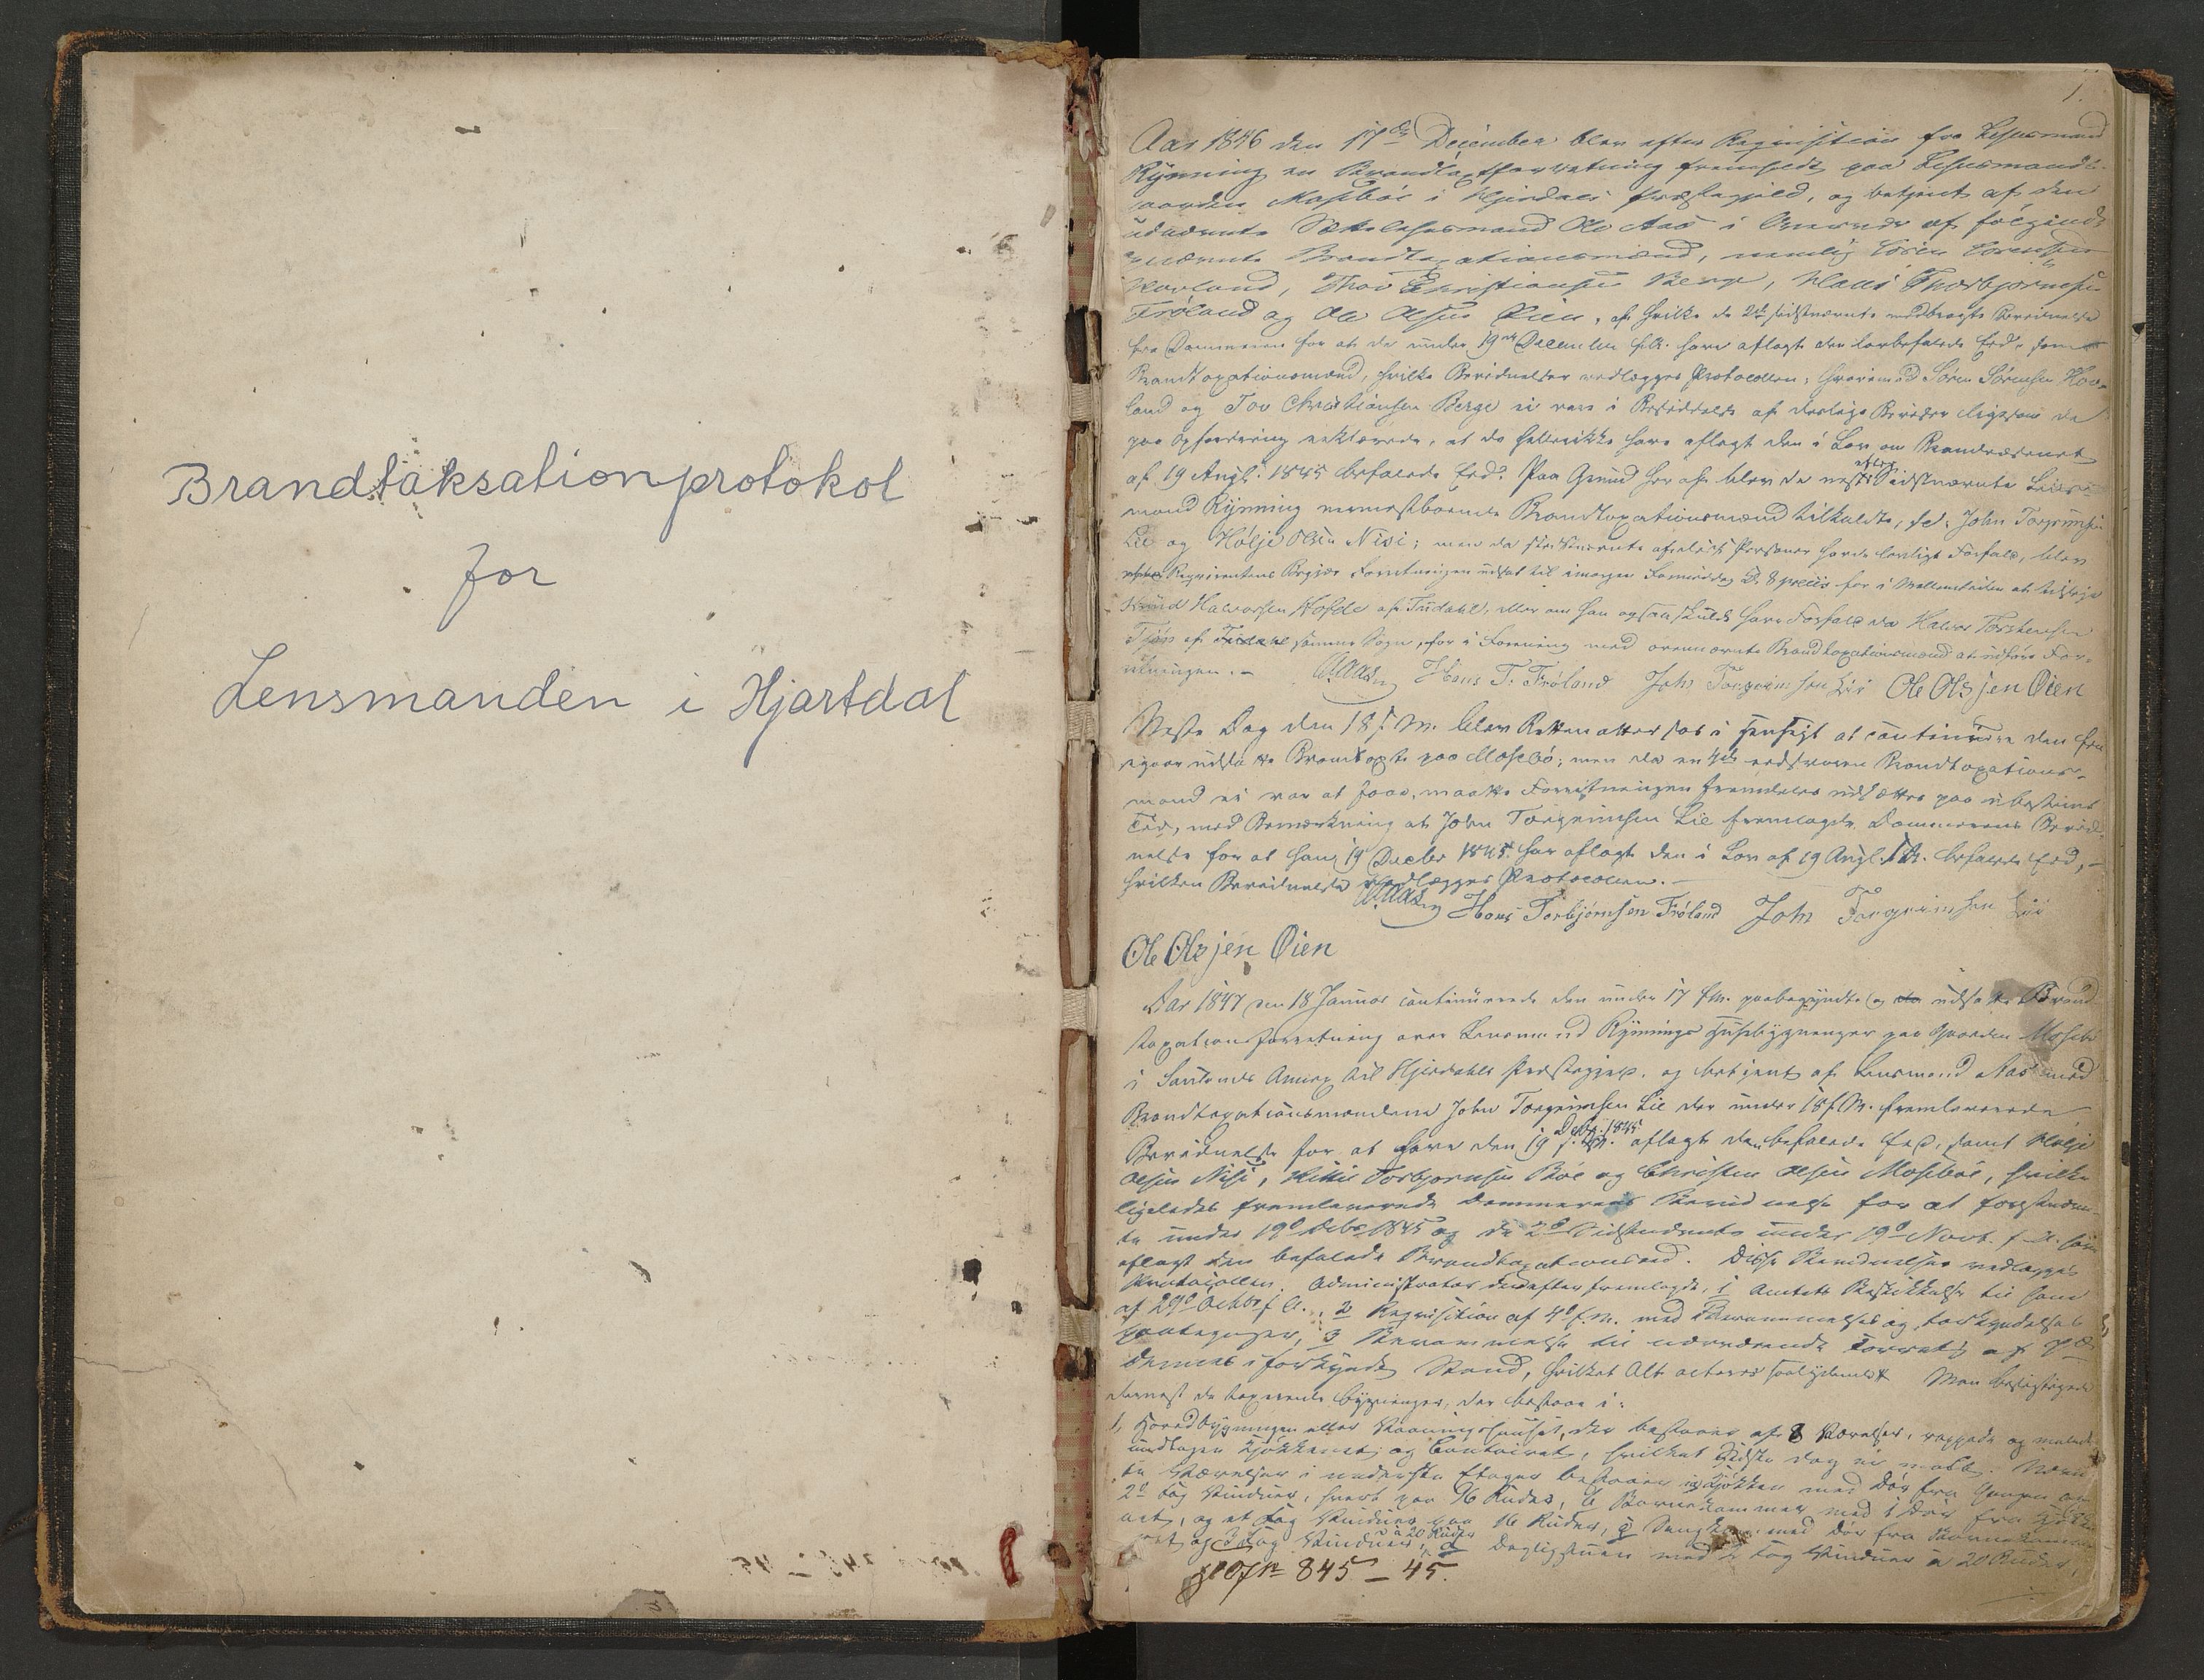 Brandtaksationprotokol
for
Lensmanden i Hjartdal
1.
Aar 1846 den 17de December blev efter Reqvisition fra Lehnsmand
Rynning en Brandtaxtforretning fremholdt paa Lehnsmands-
gaarden Mosebøe i Hjerdals Præstegjeld, og betjent af den
udnævnte Sættelehnsmand Ole Aas i Overvær af følgende
opnævnte Brandtaxationsmænd, nemlig Sören Sörensen
Hovland, Thov Christiansen Berge, Hans Thorbjørnsen
Fröland og Ole Olsen Øien, af hvilke de 2de sidstnævnte medbragte Bevidnelse
fra Dommeren for at de under 19de December f. A. have aflagt den lovbefalede Eed, som
Brandtaxationsmænd, hvilke Bevidnelser vedlægges Protocollen; hvorimod Sören Sörensen Hov-
land og Tov Christiansen Berge ei vare i Besiddelse af deslige Beviser ligesom de
paa Opfordring erklærede, at de hellerikke have aflagt den i Lov om Brandvæsenet
af 19 Augst. 1845 befalede Eed. Paa Grund heraf blev de næst sidstnævnte Lehns-
mand Rynning nærmestboende Brandtaxationsmænd tilkaldte, sc. John Torgrimsen
Lie og Hølje Olsen Nisi; men da sidstnævnte afveices Personer havde lovligt Forfald, blev
efter Reqvirentens Begjær Forretningen udsat til imorgen Formiddag Kl. 8 præcis for i Mellemtiden at tilsige
Halvorsen Hofde af Tudahl, eller om han ogsaa skulde have Forfald da Halvor Torstensen
Tjøn af samme Sogn, for i Forening med ovennævnte Brandtaxationsmænd at udføre For-
retningen. – OAas Hans T. Fröland John Torgrimsen Lie Ole Olsjen Øien
Næste Dag den 18 f. M. blev Retten atter sat i Hensigt at continuere den fra
igaar udsatte Brandtaxt paa Mosebø; men da en 4de eedsvoren Brandtaxations-
mand ei var at faae, maatte Forretningen fremdeles udsættes paa ubestemt
Tid, med Bemærkning at John Torgrimsen Lie fremlagde Dommerens Bevid-
nelse for at han 19 Decbr 1845 har aflagt den i Lov af 19 Augst. s. A. befalede Eed, –
hvilken Bevidnelse vedlægges Protocollen. –
OAas Hans Torbjörnsen Fröland John Torgrimsen Lie
Ole Olsjen Øien
Aar 1847 den 18 Januar continuerede den under 17 f. M. paabegyndte og udsatte Brand
taxationsforretning over Lensmand Rynnings Huusbygninger paa Gaarden Mosebö
i Sauland Annex til Hjerdahls Præstegjeld, og betjent af Lensmand Aas med
Brandtaxationsmændene John Torgrimsen Lie der under 18 f. M. fremleverede
Bevidnelse for at have den 19 Decbr. 1845 aflagt den befalede Eed, samt Hølje
Olsen Nisi, Kittil Torbjørnsen Bøe og Christen Olsen Mosebøe, hvilke
ligeledes fremleverede Dommerens Bevidnelse for at førstnævn-
te under 19de Decbr 1845 og de 2de Sidstnævnte under 19de Novb. f. A. have
aflagt den befalede Brandtaxationseed. Disse Bevidnelser vedlægges
Protocollen. Administrator derefter fremlagde, 1 Amtets Beskikkelse til ham
af 29de Octbr f. A., 2 Reqvisition af 4de f. M. med Berammelses og Forkyndelses
paategninger, 3 Berammelse til nærværende Forretn. af
Dennes i forkyndt Stand, hvilket Alt acteres saalydende. Man besigtigede
dernæst de taxerende bygninger, der bestaar i:
1, Hovedbygningen eller Vaaningshuuset, der bestaaer af 8 Værelser, rappede og malede
undtagen Kjøkkenet og Contoiret, hvilket Sidste dog er malt. Nævn-
te Værelser i nederste Etage bestaaer i Kjøkken med Dør fra Gangen og
2de Fag Vinduer, hvert paa 16 Ruder, b Barnekammer med 1 Dør fra Kjøkke-
net, og et Fag Vinduer paa 16 Ruder, c Sengk. med Dør fra Barnekammer
et og 3 Fag Vinduer à 20 Ruder, d Dagligstuen med 2 Fag Vinduer à 20 Ruder,
845 – 45.